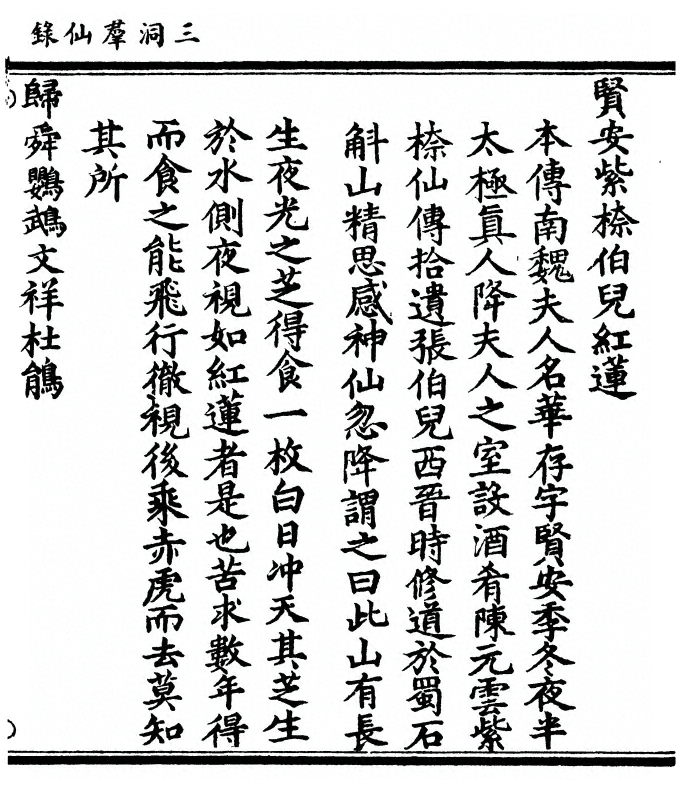 三洞羣仙錄
賢安紫㮈伯兒紅蓮
本傳南魏夫人名華存字賢安季冬夜半
太極真人降夫人之室設酒肴陳元雲紫
㮈仙傳拾遺張伯兒西晉時修道於蜀石
斛山精思感神仙忽降謂之曰此山有長
生夜光之芝得食一枚白日冲天其芝生
於水側夜視如紅蓮者是也苦求數年得
而食之能飛行徹視後乘赤虎而去莫知
其所
歸舜鸚鵡文祥杜鵑